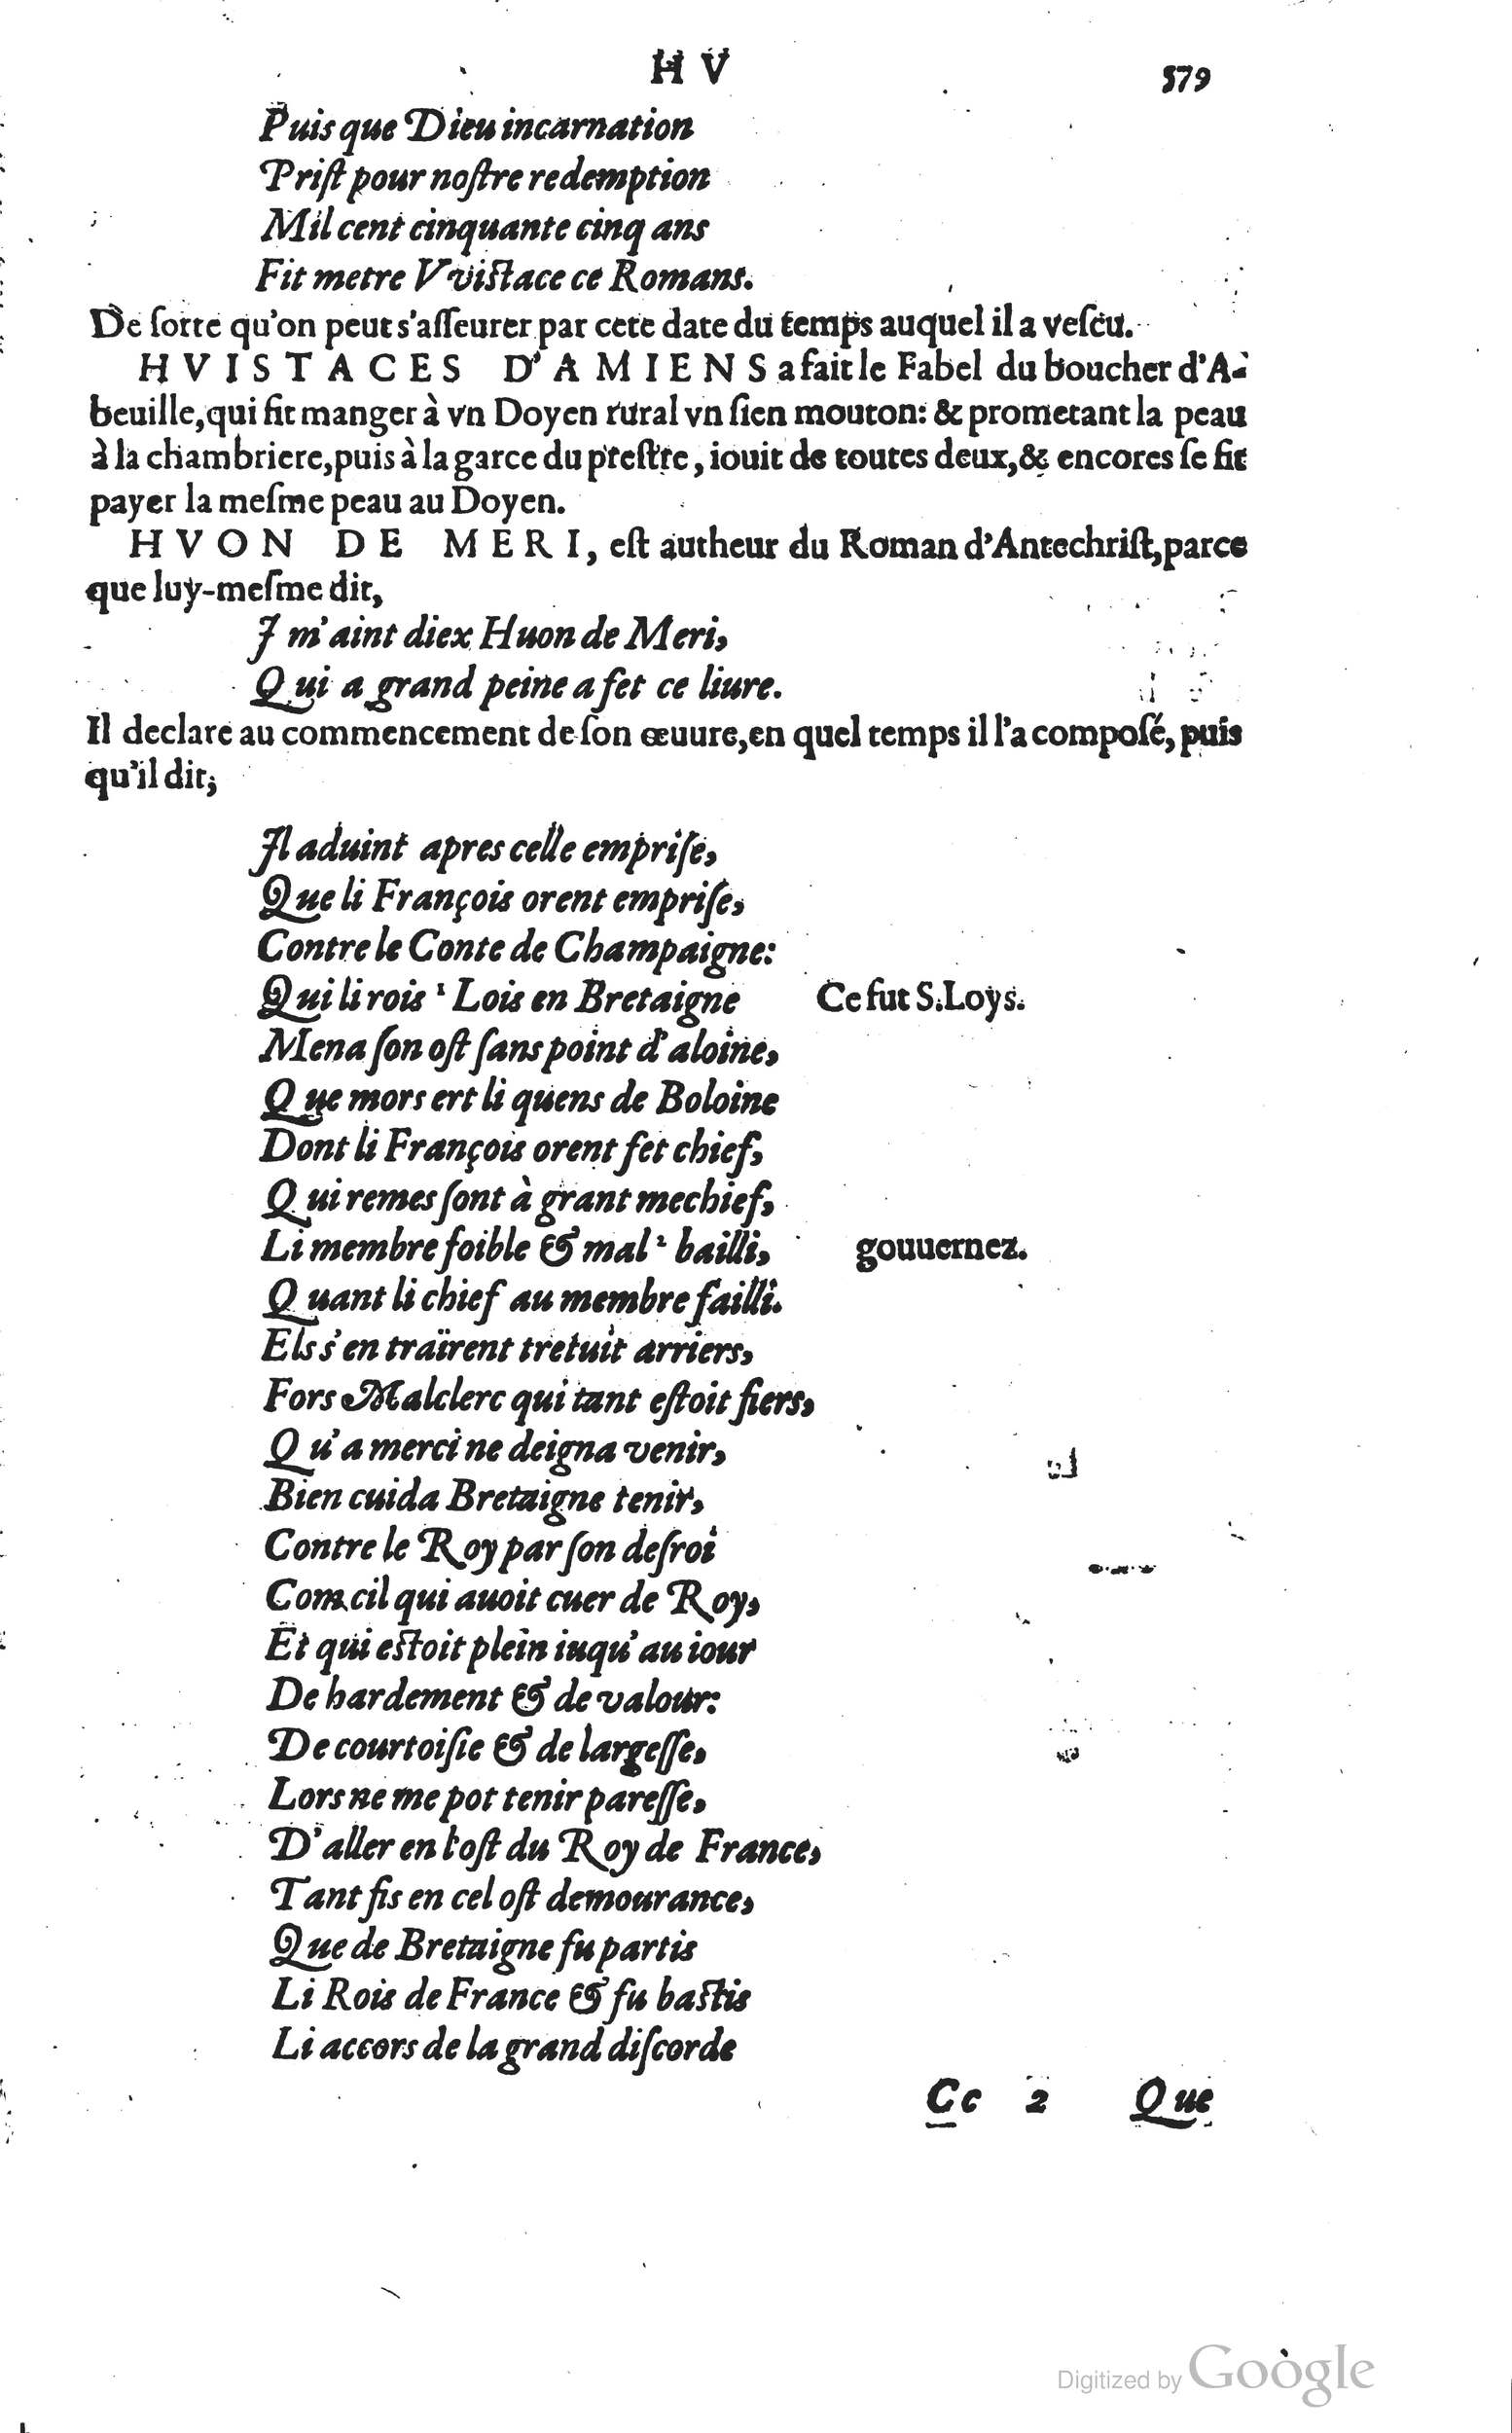 H V 579
Puis que Dieu incarnation
Priſt pour noſtre redemption
Mil cent cinquante cinq ans
Fit metre Vviſtace ce Romans.
De ſorte qu'on peut s'aſſeurer par cete date du temps auquel il a veſcu.
HVISTACES D'AMIENS a fait le Fabel du boucher d'A-
beuille, qui fit manger à vn Doyen rural vn ſien mouton: & prometant la peau
à la chambriere, puis à la garce du preſtre, iouit de toutes deux, & encores ſe fit
payer la meſme peau au Doyen.
HVON DE MERI, eſt autheur du Roman d'Antechriſt, parce
que luy-meſme dit,
J m'aint diex Huon de Meri,
Qui a grand peine a fet ce liure.
Il declare au commencement de ſon œuure, en quel temps il l'a compoſé, puis
qu'il dit;
Jl aduint apres celle empriſe,
Que li François orent empriſe,
Contre le Conte de Champaigne:
Qui li rois ¹ Lois en Bretaigne Ce fut S. Loys.
Mena ſon oſt ſans point d'aloine,
Que mors ert li quens de Boloine
Dont li François orent fet chief,
Qui remes ſont à grant mechief,
Li membre foible & mal ² bailli, gouuernez.
Quant li chief au membre failli.
Els s'en traïrent tretuit arriers,
Fors Malclerc qui tant eſtoit fiers,
Qu'a merci ne deigna venir,
Bien cuida Bretaigne tenir,
Contre le Roy par ſon deſroi
Com cil qui auoit cuer de Roy,
Et qui eſtoit plein iuqu'au iour
De hardement & de valour:
De courtoiſie & de largeſſe,
Lors ne me pot tenir pareſſe,
D'aller en l'oſt du Roy de France,
Tant fis en cel oſt demourance,
Que de Bretaigne fu partis
Li Rois de France & fu baſtis
Li accors de la grand diſcorde
Cc 2 Que
Digitized by Google